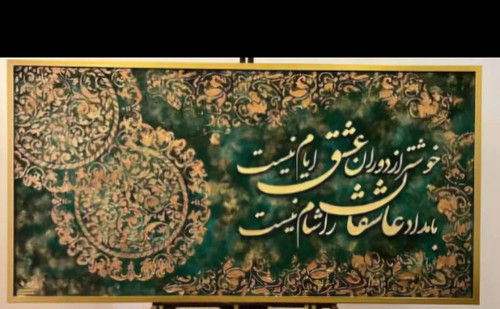 خوشتر از دوران عشق ایام نیست
بامداد عاشقان را شام نیست